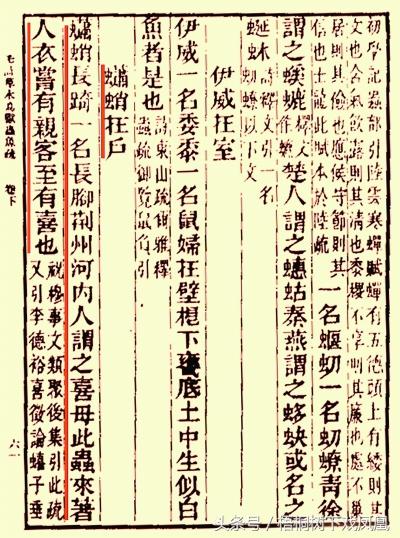 初學記蟲部引陸雲寒蟬賦蟬有五德頭上有緌則其
文也含氣飲露則其清也黍稷不享則其廉也處不巢
居則其儉也應侯守節則其
信也士龍此賦本於陸疏
一名蝘虭一名虭蟟青徐
謂之螇螰
楚人謂之蟪蛄秦燕謂之蛥蚗或名之
蜓木
詩釋文引
以下文
伊威在室
伊威一名委黍一名鼠婦在壁根下甕底土中生似白
魚者是也
詩東山疏爾雅釋
蟲疏御覽鼠負引
蠨蛸在戶
蠨蛸長踦一名長腳荊州河內人謂之喜母此蟲來著
人衣當有親客至有喜也
祝穆事文類聚後集引此疏
又引李德裕喜徵論蟢子垂
毛詩草木鳥獸蟲魚疏 卷下
六一
头条号/梧桐树下戏凤凰